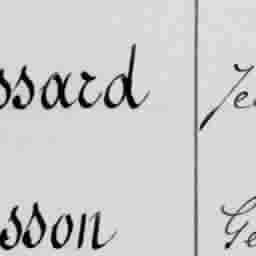 ssard Je
sson Ge